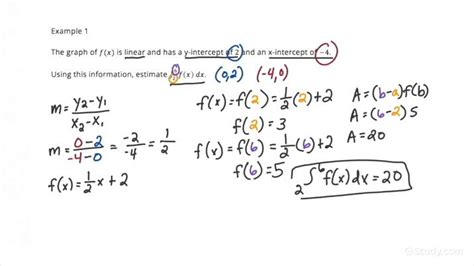 Example 1
The graph of f(x) is linear and has a y-intercept of 2 and an x-intercept of −4.
Using this information, estimate ∫₂⁶ f(x) dx. (0,2) (-4,0)
m = y₂-y₁ / x₂-x₁
m = 0-2 / -4-0 = -2 / -4 = 1/2
f(x) = 1/2 x + 2
f(x) = f(2) = 1/2 (2) + 2
f(2) = 3
f(x) = f(6) = 1/2 (6) + 2
f(6) = 5
A = (b-a) f(b)
A = (6-2) 5
A = 20
₂∫⁶ f(x) dx = 20
©Study.com